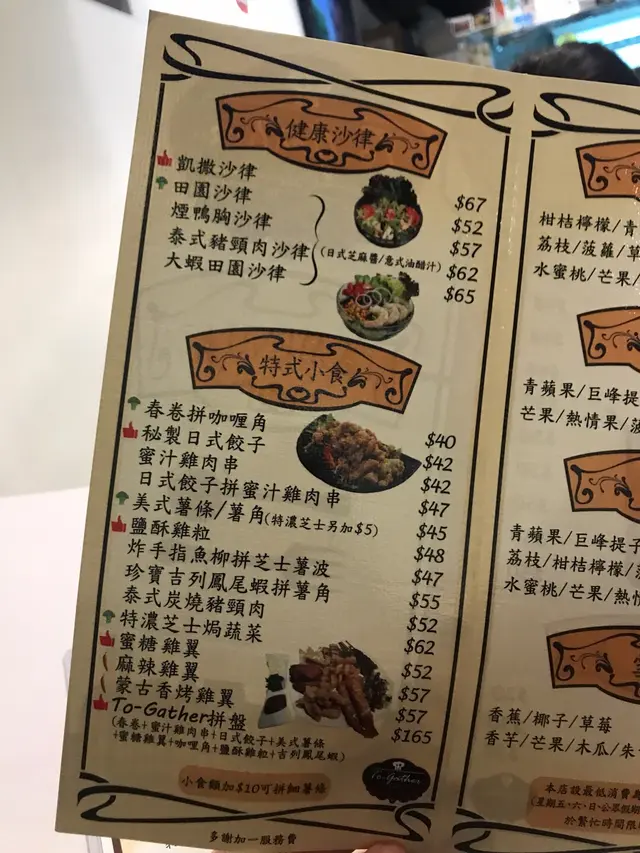 健康沙律
凱撒沙律 $67
田園沙律 $52
煙鴨胸沙律 $57
泰式豬頸肉沙律 $62
大蝦田園沙律 $65
(日式芝麻醬/意式油醋汁)
特式小食
春卷拼咖喱角 $40
秘製日式餃子 $42
蜜汁雞肉串 $42
日式餃子拼蜜汁雞肉串 $47
美式薯條/薯角(特濃芝士另加$5) $45
鹽酥雞粒 $48
炸手指魚柳拼芝士薯波 $47
珍寶吉列鳳尾蝦拼薯角 $55
泰式炭燒豬頸肉 $52
特濃芝士焗蔬菜 $62
蜜糖雞翼 $52
麻辣雞翼 $57
蒙古香烤雞翼 $57
To-Gather拼盤 $165
(春卷+蜜汁雞肉串+日式餃子+美式薯條
+蜜糖雞翼+咖喱角+鹽酥雞粒+吉列鳳尾蝦)
小食額加$10可拼細薯條
To-Gather
多謝加一服務費
柑桔檸檬/青
荔枝/菠蘿/草
水蜜桃/芒果/
青蘋果/巨峰提
芒果/熱情果/菠
青蘋果/巨峰提子
荔枝/柑桔檸檬/
水蜜桃/芒果/熱情
香蕉/椰子/草莓
香芋/芒果/木瓜/朱
本店設最低消費
(星期五、六、日、公眾假期
於繁忙時間限